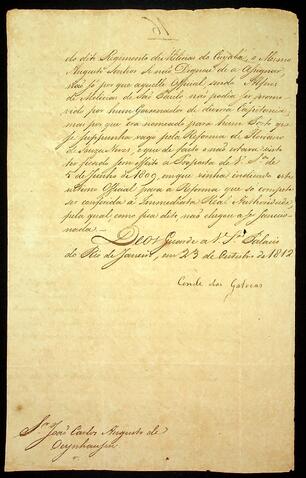 do dito Regimento de Milicias do Cuyabá, o Mesmo
Augusto Senhor Se não Dignou de a Assignar,
não só por que aquelle Official sendo Alferes
de Milicias de São Paulo não podia ser promo-
vido por hum Governador de diversa Capitania,
mas por que era nomeado para hum Posto que
se suppunha vago pela Reforma de
de Souza Neves, e que de facto o não estava, sinto
ficado sem effeito a Proposta de V. Sª de
5 de Junho de 1809, em que vinha indicado este
ultimo Official para a Reforma, que só compete
ser confirmada á Immediata Real Authoridade,
pela qual, como fica dito, não chegou a ser sanccio-
nada.
Deos Guarde a V. Sª Palacio
do Rio de Janeiro, em 23 de Outubro de 1812
Conde das Galveas
Sr João Carlos Augusto de
Oeynhausen